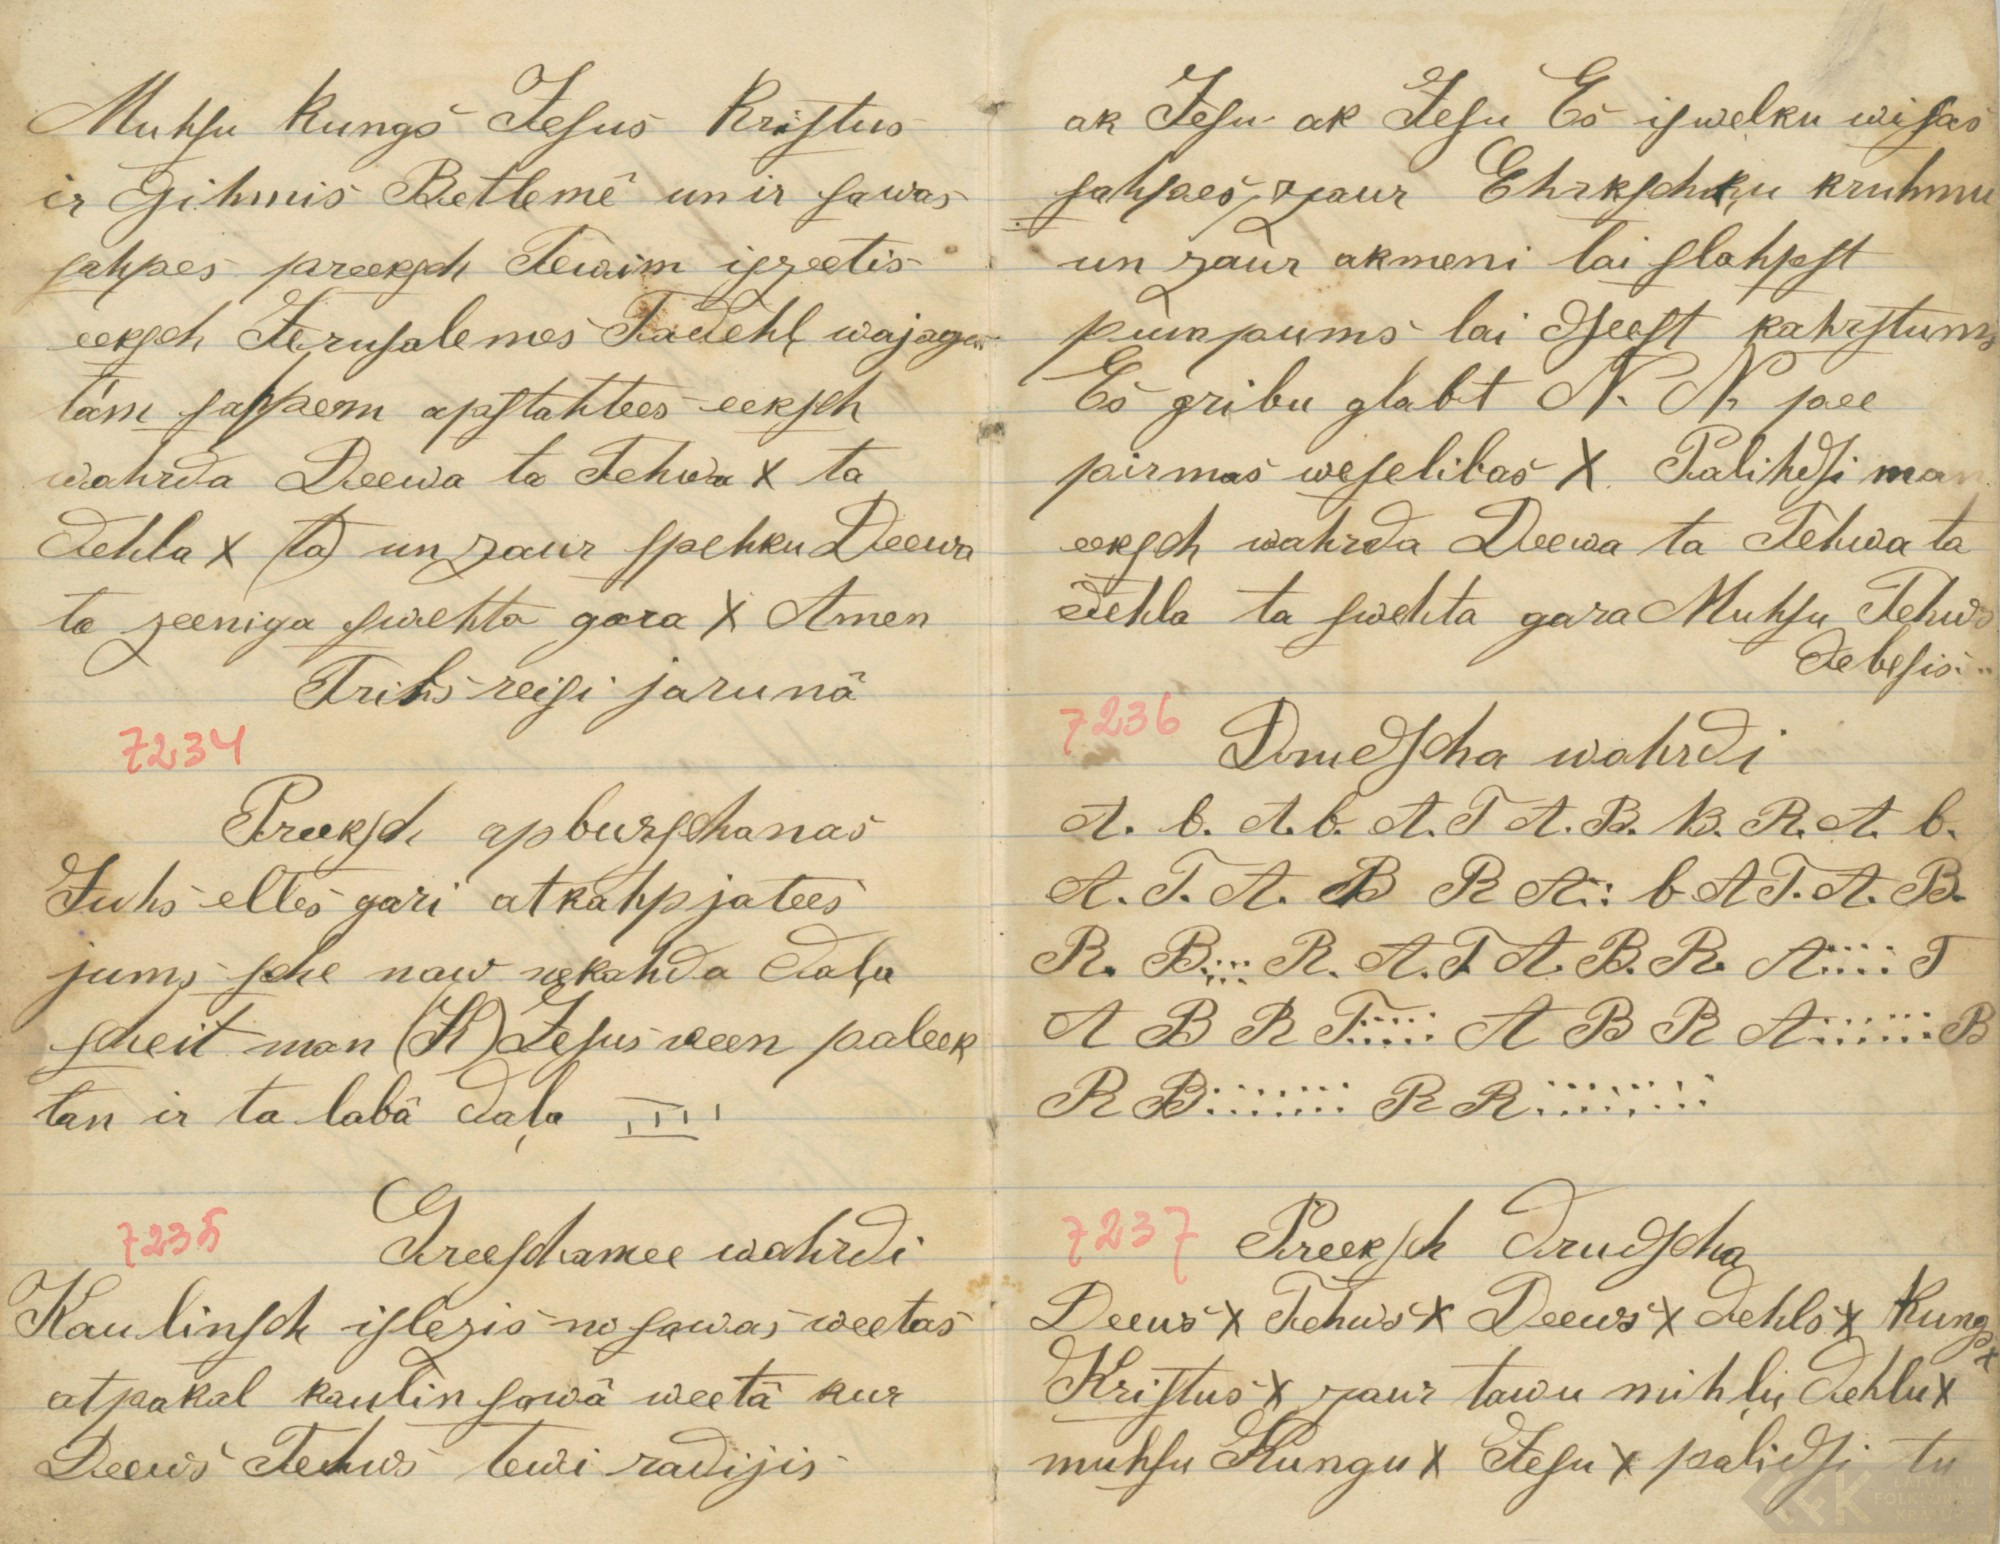 Muhſu Kungs Jeſus Kriſtus
ir Gihmis Betlemê un ir ſawas
ſahpes preekſch Tewim iſzeetis
eekſch Jeruſalemes Tadehļ wajaga
tam ſahpem apſtahtees eekſch
wahrda Deewa ta Tehwa x ta
dehla x (ta) un zaur ſpehku Deewa
ta zeeniga ſwehta gara x Amen
Trihs reiſi jarunâ
7234
Preekſch apburſchanas
Juhs elles gari atkahpjatees
jums ſche naw nekahda daļa
ſcheit man (K) Jeſus ween paleek
tan ir ta labâ daļa
7235
Greeſchamee wahrdi
Kaulinſch iſlezis no ſawas weetas
atpakal kaulin ſawâ weetâ kur
Deews Tehws tewi radijis
ak Jeſu ak Jeſu Es iſwelku wiſas
ſahpes zaur Ehrkſchķu kruhmu
un zaur akmeni lai ſlahpſt
pumpums lai dſeeſt kahrſtums
Es gribu glabt N. N. pee
pirmas weſelibas X Palihdſi man
eekſch wahrda Deewa ta Tehwa ta
dehla ta ſwehta gara Muhſu Tehws
debeſis..
7236
Drudſcha wahrdi
A. b. A. b. A. T A. B. B. R. A. b.
A. T. A. B R A.: b A T. A. B.
R. B:::: R. A. T A. B. R. A::::: T
A B R T:::::: A B R A::::::: B
R B:::::::: R R:::::::::
7237
Preekſch drudſcha
Deews x Tehws x Deews x dehls x Kungs x
Kriſtus x zaur tawu mihļu dehlu x
muhſu Kungu x Jeſu x palidſi tu
LATVIEŠU
FOLKLORAS
KRĀTUVE